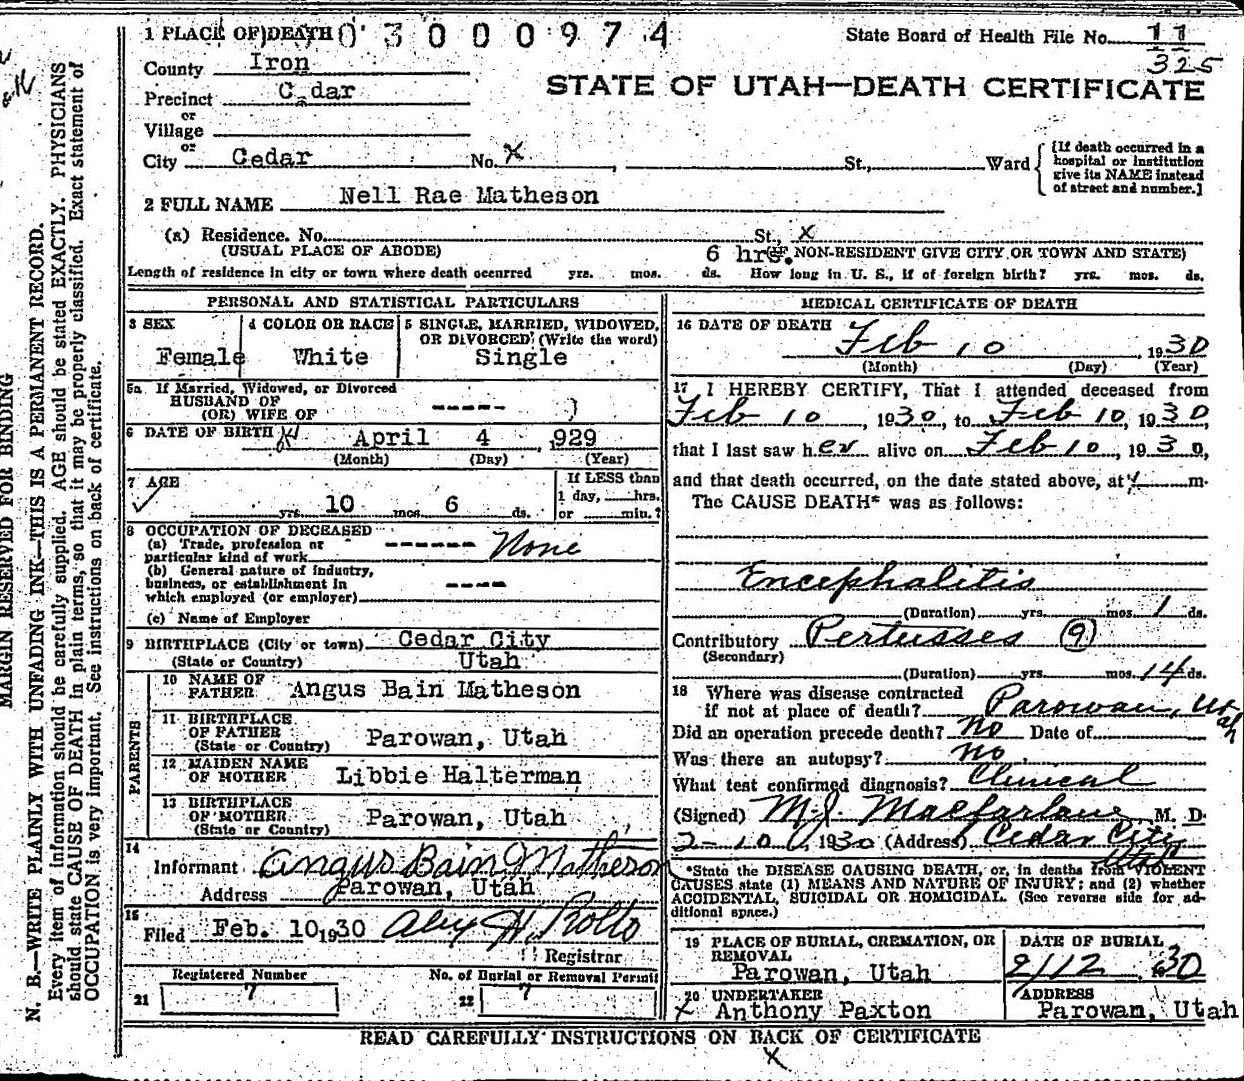 MARGIN RESERVED FOR BINDING
N. B.—WRITE PLAINLY WITH UNFADING INK—THIS IS A PERMANENT RECORD.
Every item of information should be carefully supplied. AGE should be stated EXACTLY. PHYSICIANS
should state CAUSE OF DEATH in plain terms, so that it may be properly classified. Exact statement of
OCCUPATION is very important. See instructions on back of certificate.
1 PLACE OF DEATH 03000974
State Board of Health File No. 11
325
County Iron
STATE OF UTAH—DEATH CERTIFICATE
Precinct C dar
or
Village
or
City Cedar No. X St., Ward
[If death occurred in a
hospital or institution
give its NAME instead
of street and number.]
2 FULL NAME Nell Rae Matheson
(a) Residence. No. St., X
(USUAL PLACE OF ABODE) 6 hrs. (IF NON-RESIDENT GIVE CITY OR TOWN AND STATE)
Length of residence in city or town where death occurred yrs. mos. ds. How long in U. S., if of foreign birth? yrs. mos. ds.
PERSONAL AND STATISTICAL PARTICULARS
3 SEX
Female
4 COLOR OR RACE
White
5 SINGLE, MARRIED, WIDOWED,
OR DIVORCED (Write the word)
Single
5a If Married, Widowed, or Divorced
HUSBAND OF
(OR) WIFE OF -----
6 DATE OF BIRTH April 4 ,929
(Month) (Day) (Year)
7 AGE
yrs. 10 mos. 6 ds.
If LESS than
1 day, hrs.
or min.?
8 OCCUPATION OF DECEASED
(a) Trade, profession or
particular kind of work ------ None
(b) General nature of industry,
business, or establishment in
which employed (or employer) ----
(c) Name of Employer
9 BIRTHPLACE (City or town) Cedar City
(State or Country) Utah
PARENTS
10 NAME OF
FATHER Angus Bain Matheson
11 BIRTHPLACE
OF FATHER
(State or Country) Parowan, Utah
12 MAIDEN NAME
OF MOTHER Libbie Halterman
13 BIRTHPLACE
OF MOTHER
(State or Country) Parowan, Utah
14
Informant Angus Bain Matheson
Address Parowan, Utah
15
Filed Feb. 10, 1930 Alex H. Rollo
Registrar
Registered Number
21 7
No. of Burial or Removal Permit
22 7
MEDICAL CERTIFICATE OF DEATH
16 DATE OF DEATH
Feb 10, 1930
(Month) (Day) (Year)
17 I HEREBY CERTIFY, That I attended deceased from
Feb 10, 1930, to Feb 10, 1930,
that I last saw her alive on Feb 10, 1930,
and that death occurred, on the date stated above, at m.
The CAUSE DEATH* was as follows:
Encephalitis
(Duration) yrs. mos. 1 ds.
Contributory Pertusses (9)
(Secondary)
(Duration) yrs. mos. 14 ds.
18 Where was disease contracted
if not at place of death? Parowan, Utah
Did an operation precede death? No Date of
Was there an autopsy? no
What test confirmed diagnosis? Clinical
(Signed) M. J. Macfarlane, M. D.
2-10, 1930 (Address) Cedar City
Utah
*State the DISEASE CAUSING DEATH, or, in deaths from VIOLENT
CAUSES state (1) MEANS AND NATURE OF INJURY; and (2) whether
ACCIDENTAL, SUICIDAL OR HOMICIDAL. (See reverse side for ad-
ditional space.)
19 PLACE OF BURIAL, CREMATION, OR
REMOVAL
Parowan, Utah
DATE OF BURIAL
2/12, 1930
20 UNDERTAKER
X Anthony Paxton
ADDRESS
Parowan, Utah
READ CAREFULLY INSTRUCTIONS ON BACK OF CERTIFICATE
X